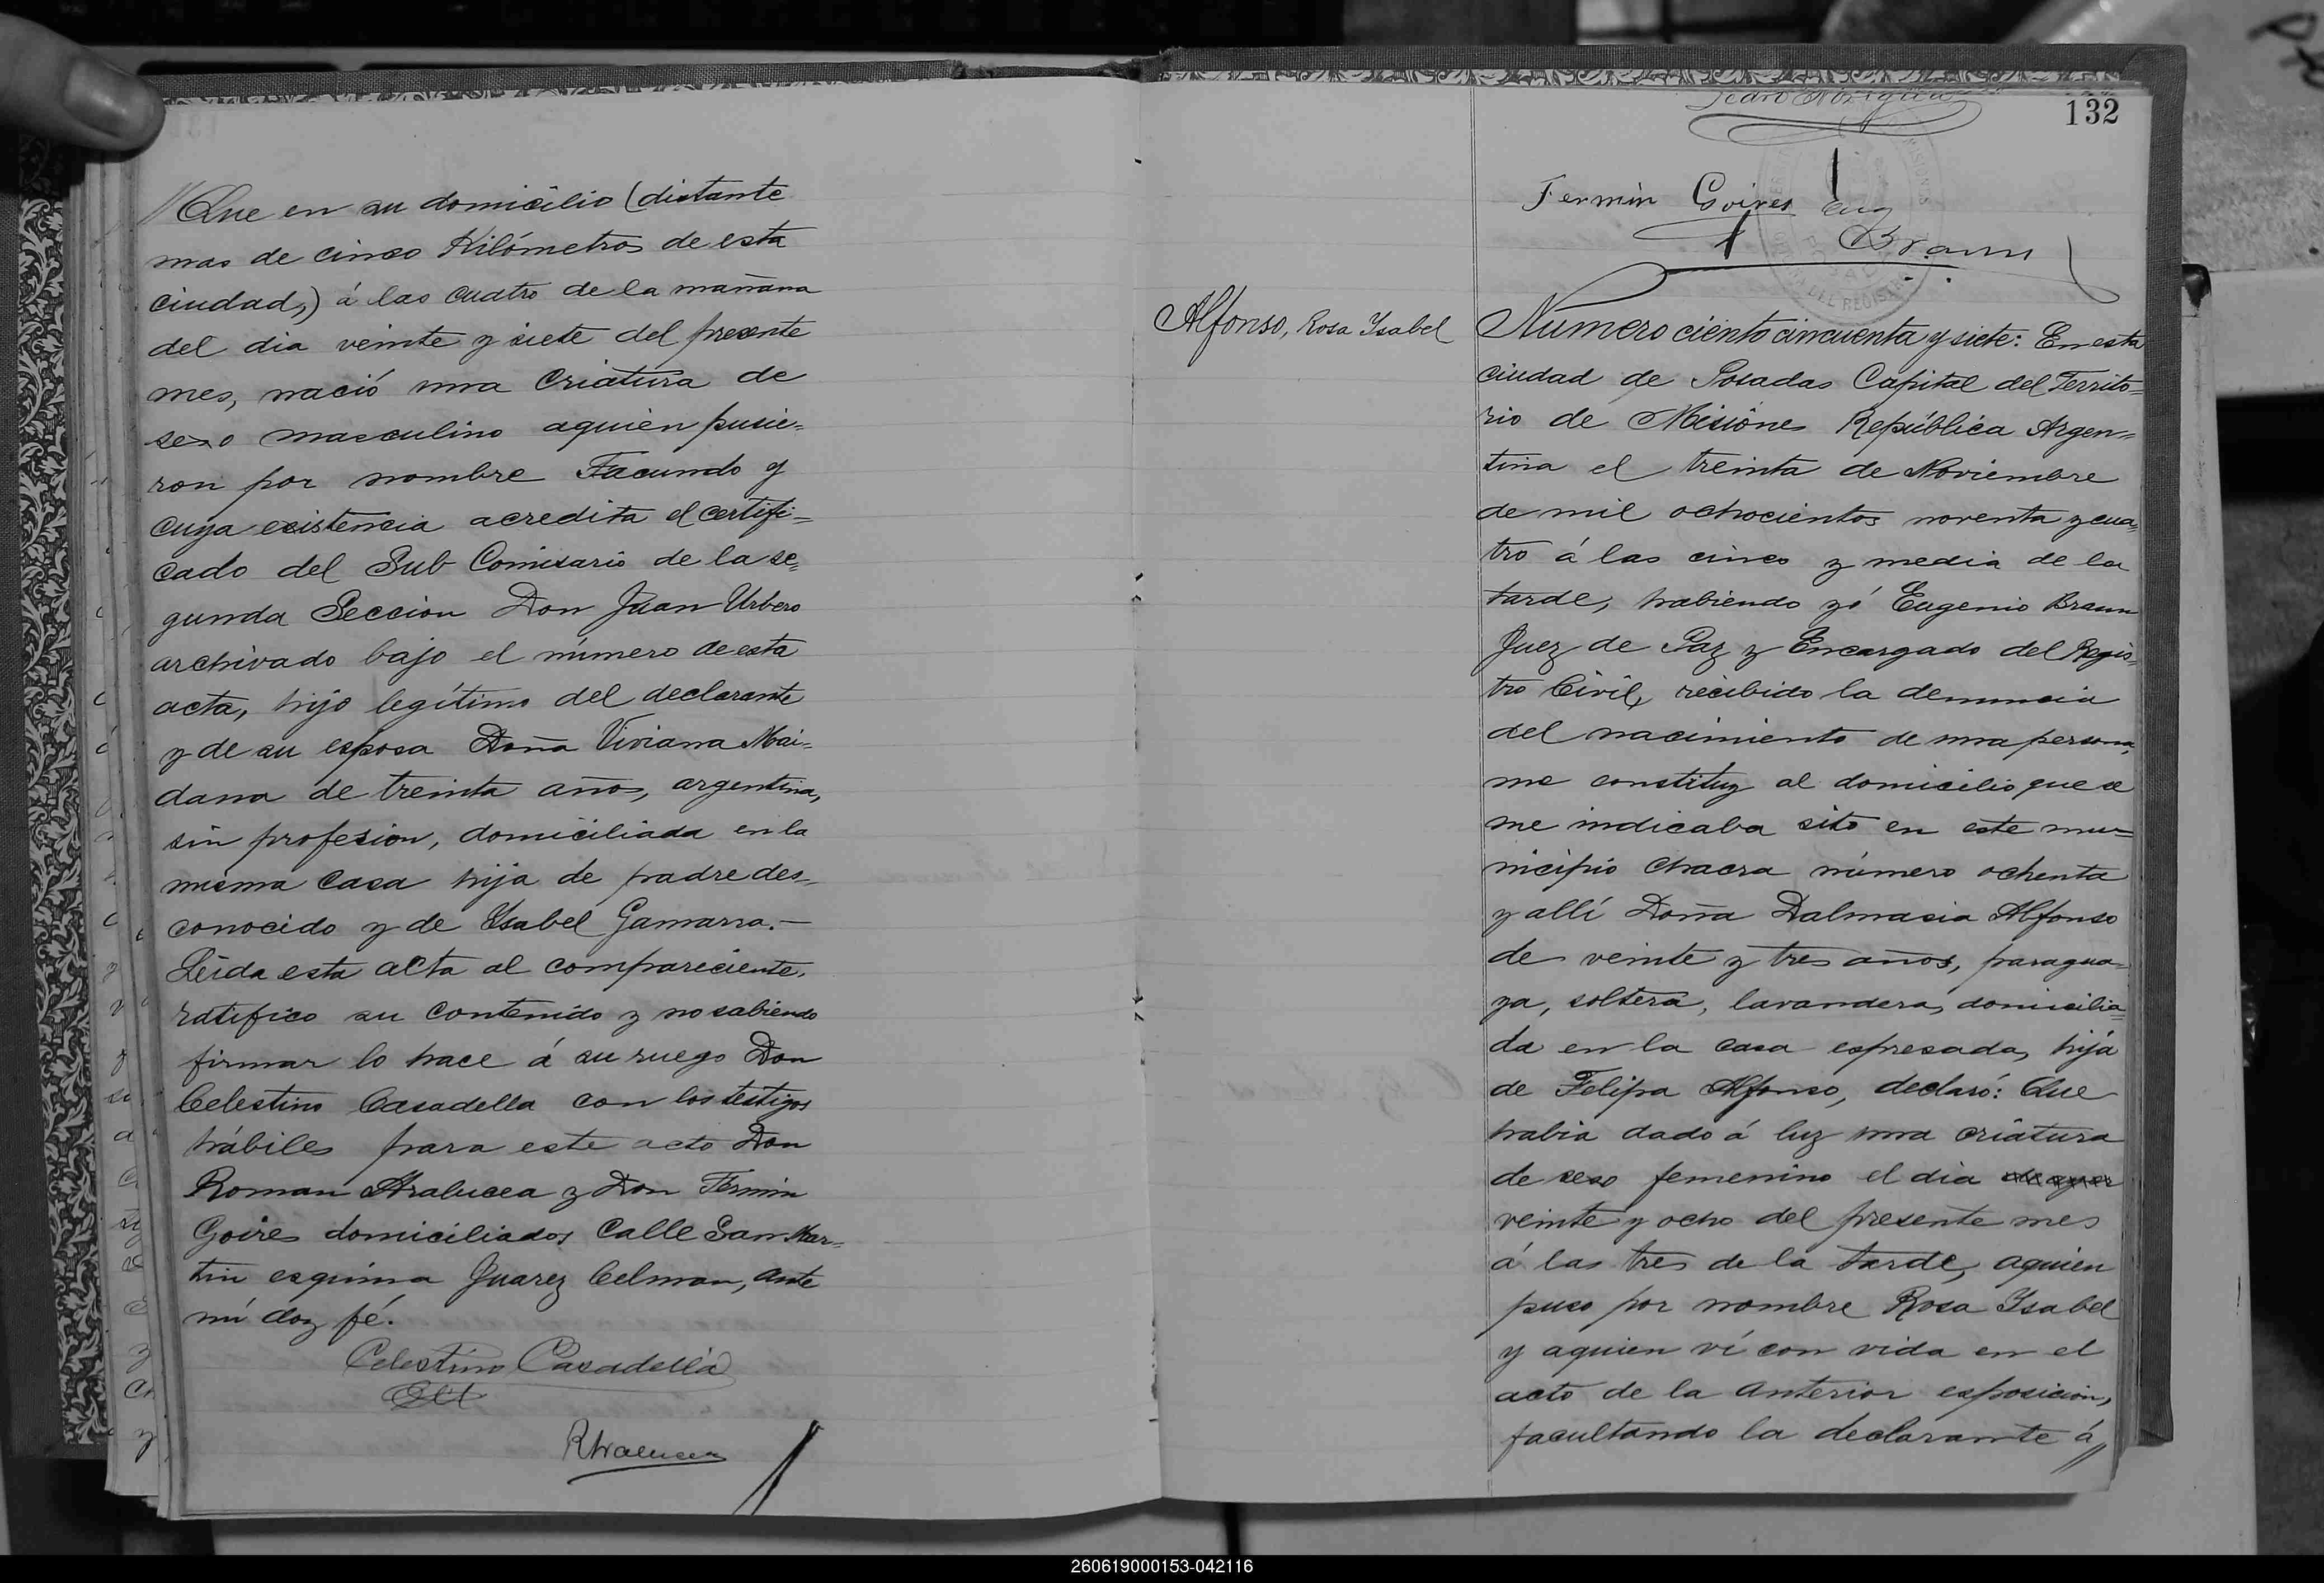 // Que en su domicilio (distante
mas de cinco Kilómetros de esta
ciudad,) á las cuatro de la mañana
del dia veinte y siete del presente
mes, nació una Criatura de
sexo masculino aquien pusie=
ron por nombre Facundo y
cuya existencia acredita el certifi=
cado del Sub Comisario de la se=
gunda Seccion Don Juan Urbero
archivado bajo el número de esta
acta, hijo legítimo del declarante
y de su esposa Doña Viviana Mai=
dana de treinta años, argentina,
sin profesion, domiciliada en la
misma Casa hija de padre des=
conocido y de Ysabel Gamarra.—
Leida esta acta al compareciente,
ratifico su contenido y no sabiendo
firmar lo hace á su ruego Don
Celestino Casadella con los testigos
hábiles para este acto Don
Roman Aralucea y Don Fermin
Goires domiciliados Calle San Mar=
tin esquina Juarez Celman, ante
mí doy fé.
Celestino Casadella
132
Fermin Goires Eug
Braun
Alfonso, Rosa Ysabel
Número ciento cincuenta y siete: En esta
ciudad de Posadas Capital del Territo=
rio de Misiones República Argen=
tina el treinta de Noviembre
de mil ochocientos noventa y cua=
tro á las cinco y media de la
tarde, habiendo yó Eugenio Braun
Juez de Paz y Encargado del Regis=
tro Civil, recibido la denuncia
del nacimiento de una persona,
me constituy al domicilio que se
me indicaba sito en este mu=
nicipio chacra número ochenta
y allí Doña Dalmasia Alfonso
de veinte y tres años, paragua=
ya, soltera, lavandera, domicilia=
da en la casa espresada, hija
de Felipa Alfonso, declaró: Que
habia dado á luz una criatura
de sexo femenino el dia
veinte y ocho del presente mes
á las tres de la tarde, aquien
puso por nombre Rosa Ysabel
y aquien ví con vida en el
acto de la anterior esposicion,
facultando la declarante á //
260619000153-042116